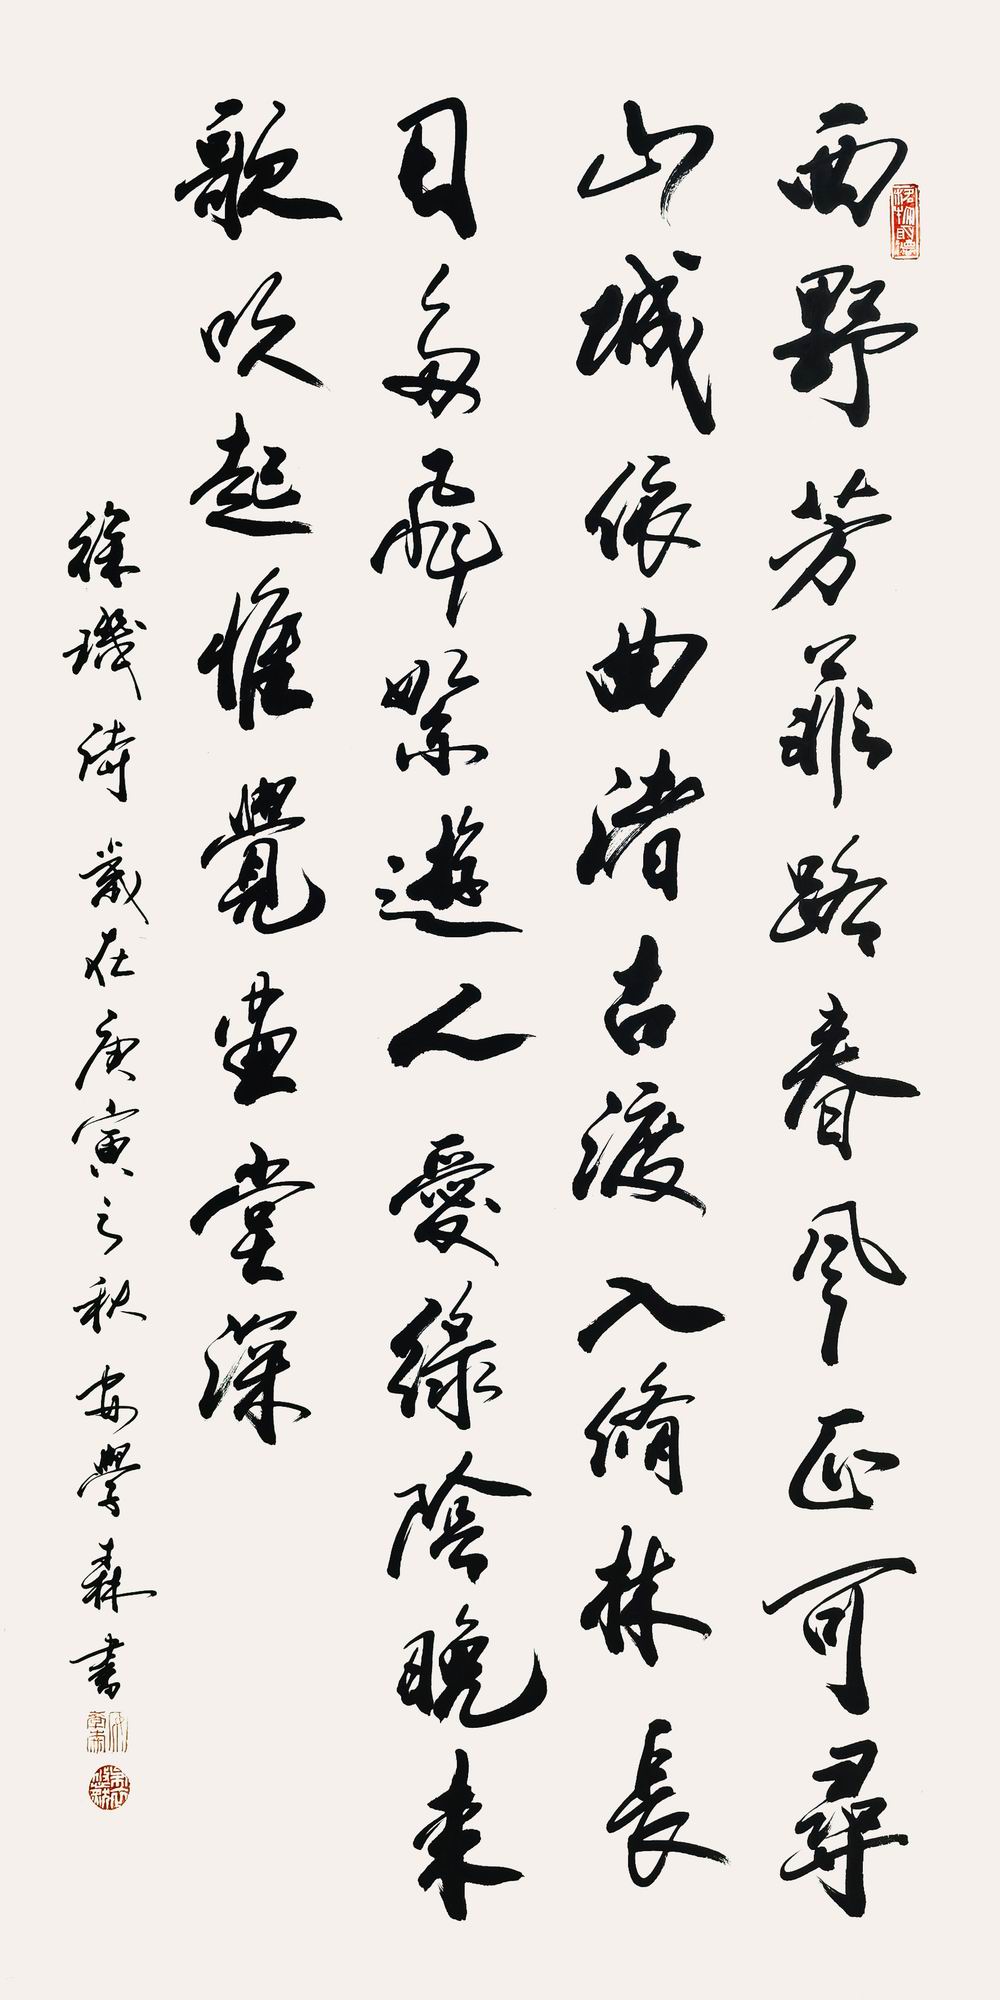 西野芳菲路春風正可尋
山城依曲渚古渡入脩林長
日多飛絮遊人愛綠陰晚来
歌吹起惟覺畫堂深
徐璣詩歲在庚寅之秋安學森書